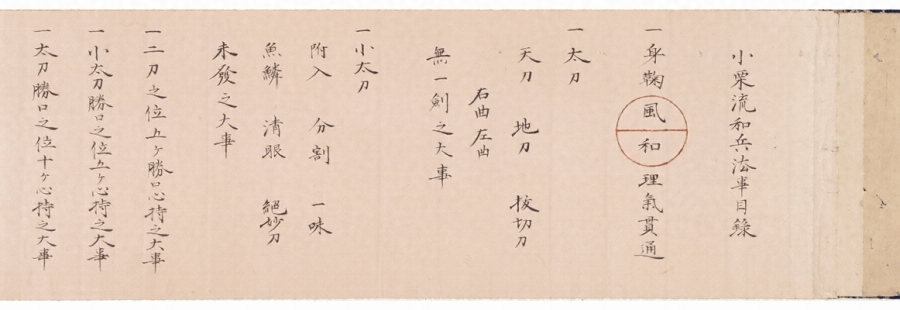 小栗流和兵法事目録
一身鞠風和理氣貫通
一太刀
天刀 地刀 拔切刀
右曲左曲
無一劍之大事
一小太刀
附入 分割 一味
魚鱗 清眼 絕妙刀
未發之大事
一二刀之位五ヶ勝口心持之大事
一小太刀勝口之位五ヶ心持之大事
一太刀勝口之位十ヶ心持之大事